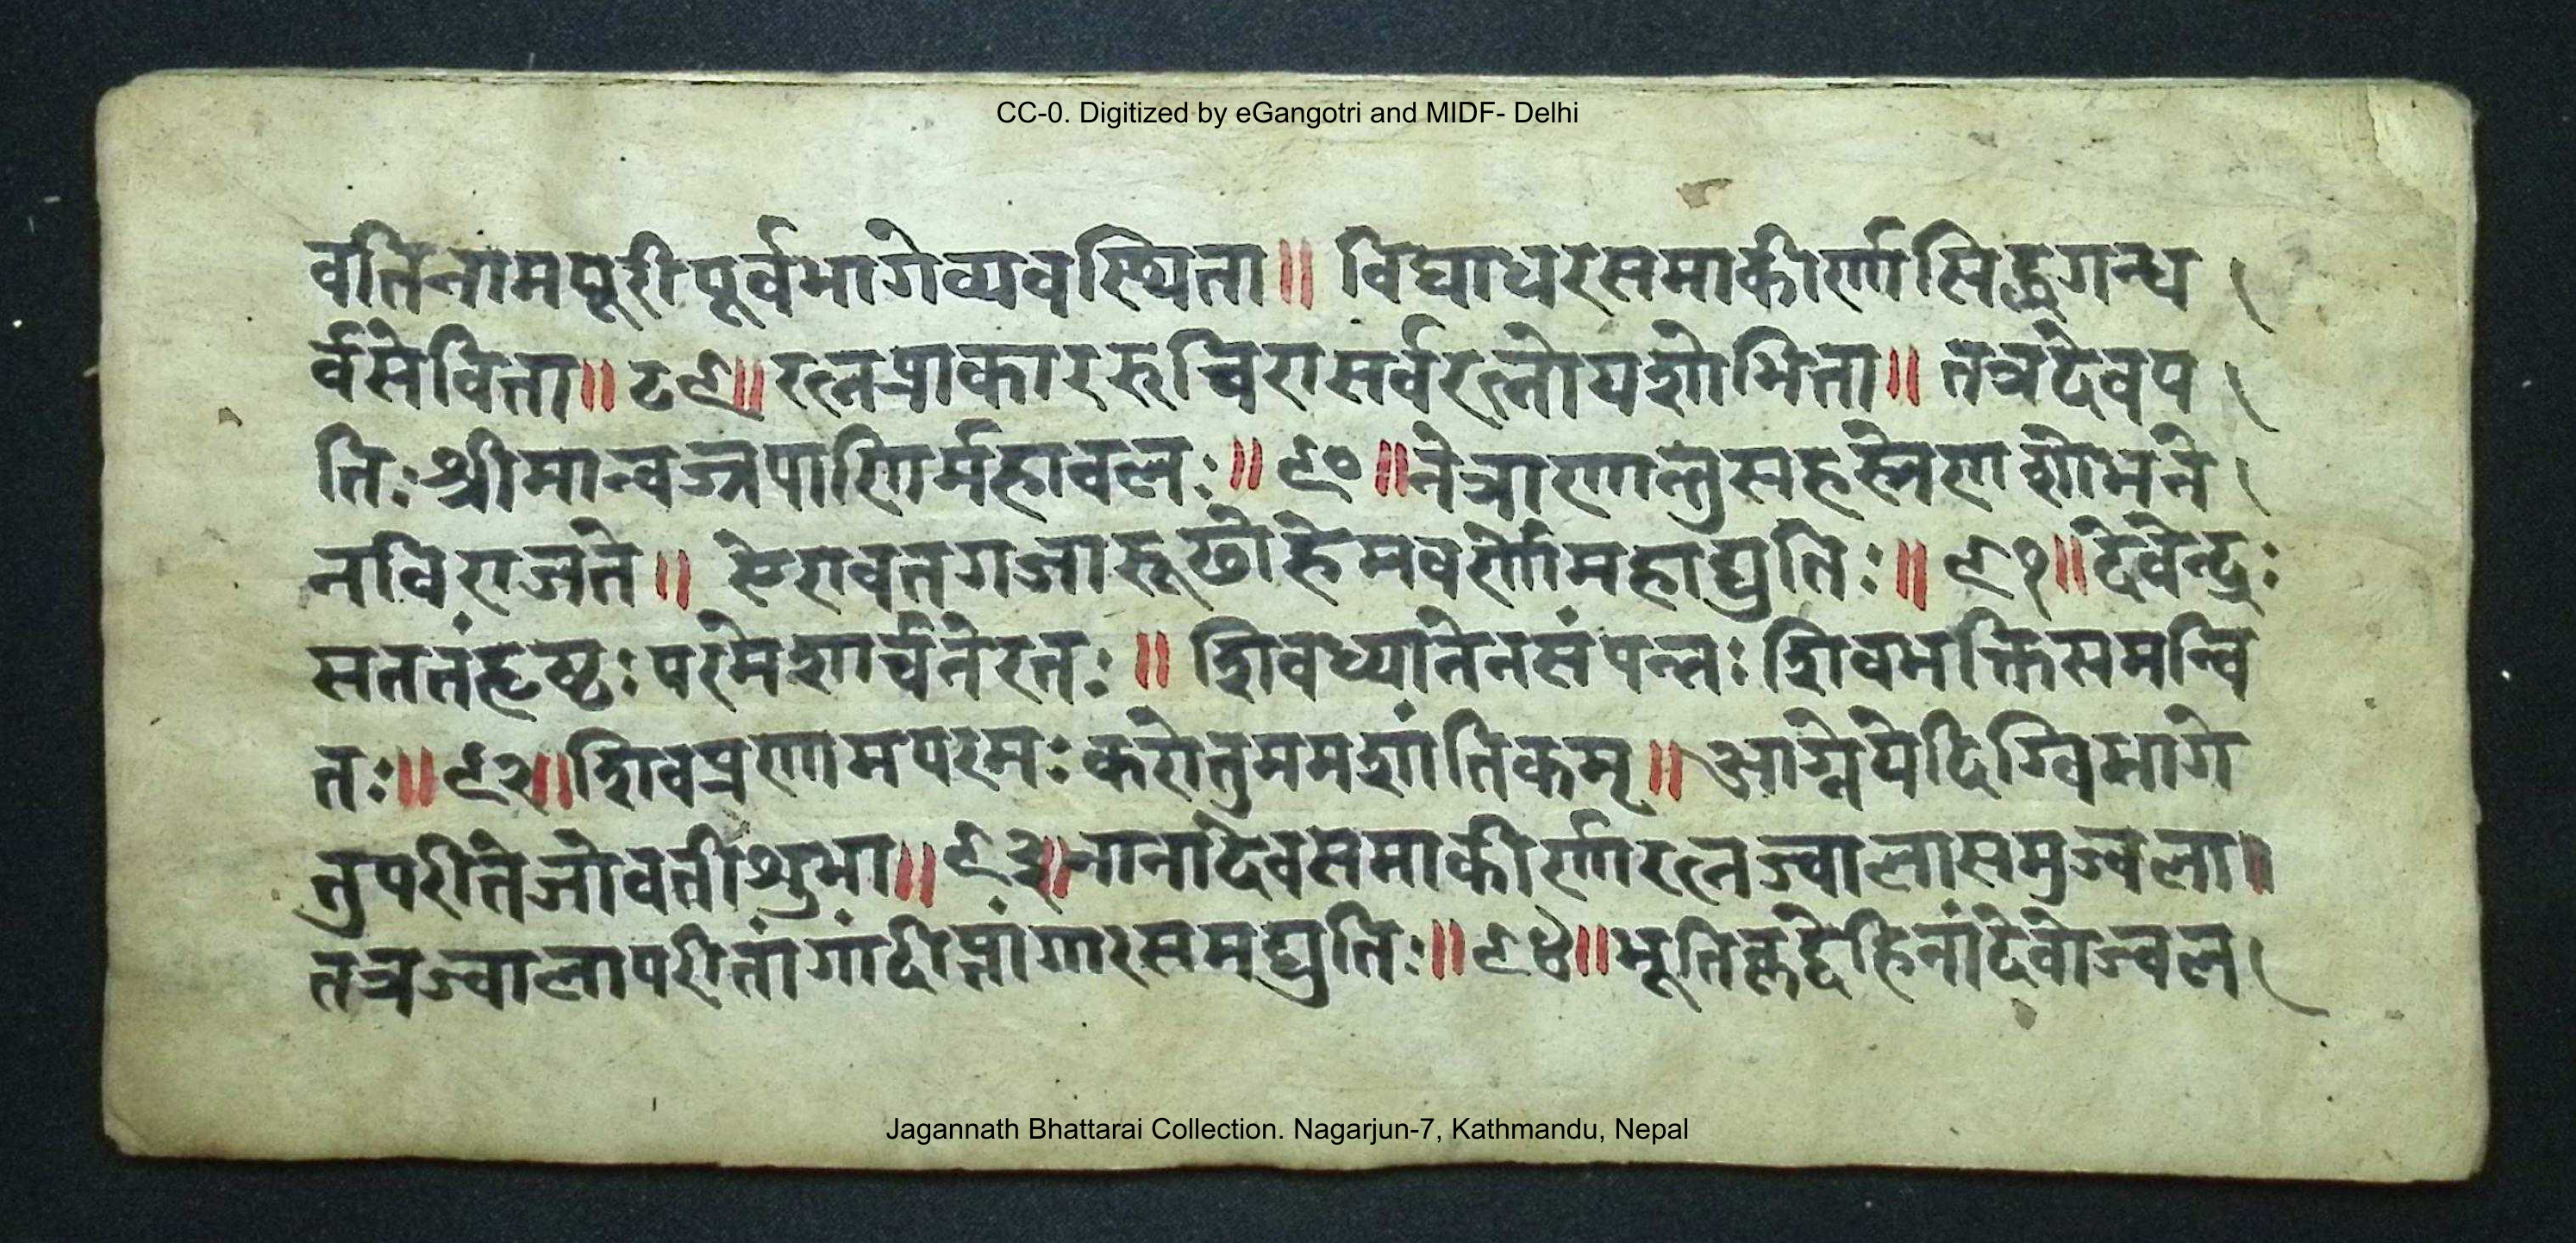 CC-0. Digitized by eGangotri and MIDF- Delhi
वतिनामपूरीपूर्वभागेव्यवस्थिता॥ विद्याधरसमाकीर्णासिद्धगन्ध
र्वसेविता॥ ८९॥ रत्नप्राकाररूचिरासर्वरत्नोपशोभिता॥ तत्रदेवप
तिः श्रीमान्वज्रपाणिर्महावलः॥ ९० ॥नेत्राणान्तुसहस्रेणशोभने
नविराजते॥ ऐरावतगजारूढोहेमवर्णोमहाद्युतिः॥ ९१॥ देवेन्द्रः
सततंहृष्टः परमेशार्चनेरतः॥ शिवध्यानेनसंपन्नः शिवभक्तिसमन्वि
तः॥ ९२॥ शिवप्रणामपरमः करोतुममशांतिकम्॥ आग्नेयेदिग्विभागे
तुपरीतेजोवतीशुभा॥ ९३॥ नानादेवसमाकीर्णारत्नज्वालासमुज्वला॥
तत्रज्वालापरीतांगांदीप्तांगारसमद्युतिः॥ ९४॥ भूतिकृद्देहिनांदेवोज्वल
Jagannath Bhattarai Collection. Nagarjun-7, Kathmandu, Nepal